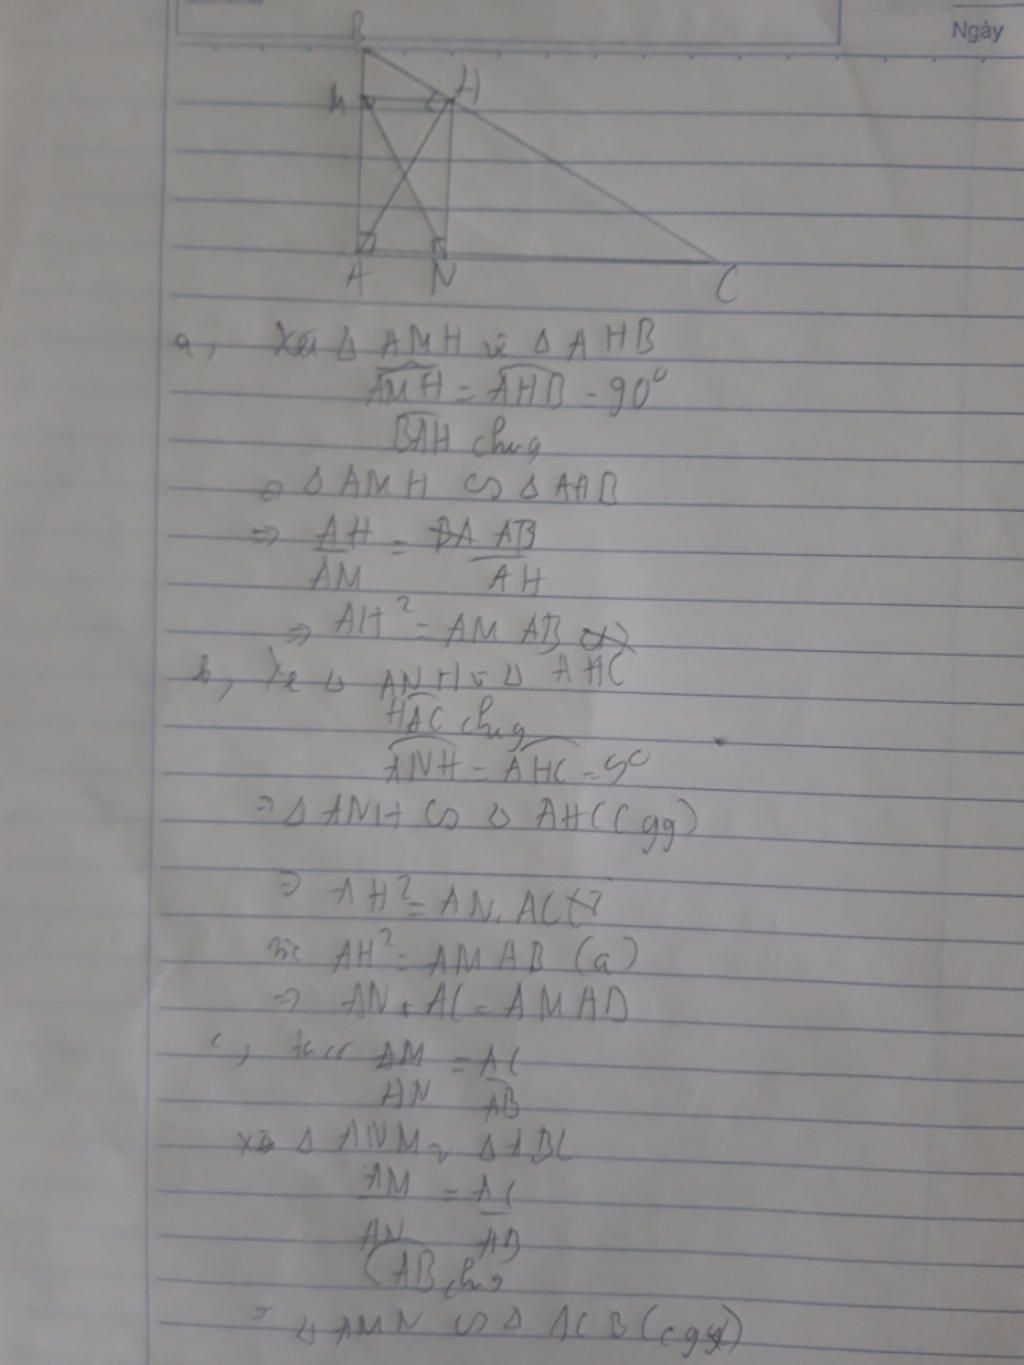 Ngày
B
M H
A N C
a, Xét Δ AMH và Δ AHB
AMH = AHB = 90°
BAH chug
⇒ Δ AMH ∽ Δ AHB
⇒ AH/AM = AB/AH
⇒ AH² = AM AB
b, Xe Δ ANH v Δ AHC
HAC chug
ANH = AHC = 90
⇒ Δ ANH ∽ Δ AHC (gg)
⇒ AH² = AN. AC
mà AH² = AM AB (a)
⇒ AN . AC = AM AB
c, ta có AM/AN = AC/AB
Xé Δ ANM và Δ ABC
AM/AN = AC/AB
CAB chug
⇒ Δ AMN ∽ Δ ACB (cgc)